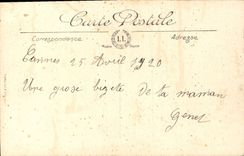 Carte Postale
Correspondance
Adresse
LL
Cannes 25 Avril 1920
Une grose bigete de ta maman